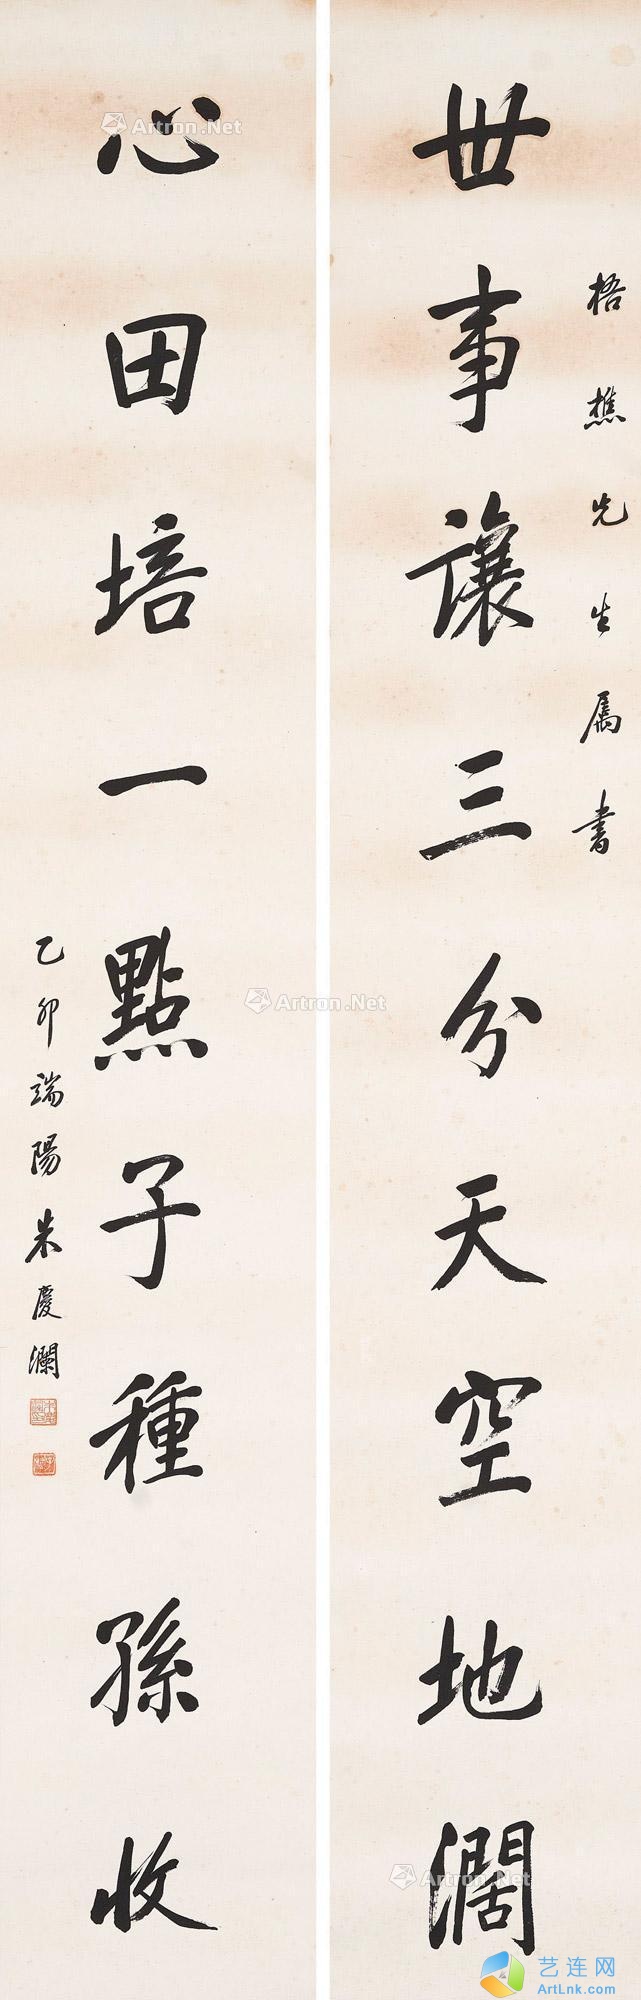 梧樵先生属書
世事讓三分天空地濶
心田培一點子種孫收
乙卯端陽朱慶瀾
Artron.Net
Artron.Net
Artron.Net
Artron.Net
艺连网
ArtLnk.com